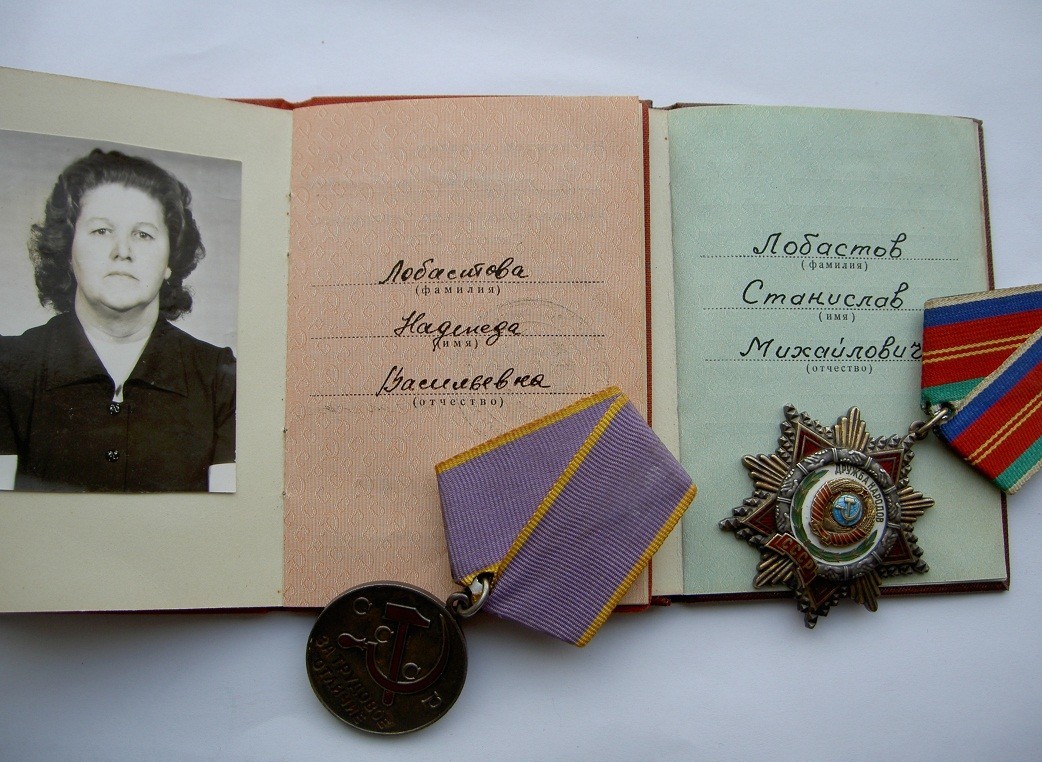 Лобастова
(фамилия)
Надежда
(имя)
Васильевна
(отчество)
Лобастов
(фамилия)
Станислав
(имя)
Михайлович
(отчество)
СССР
ЗА ТРУДОВОЕ
ОТЛИЧИЕ
ДРУЖБА НАРОДОВ
СССР